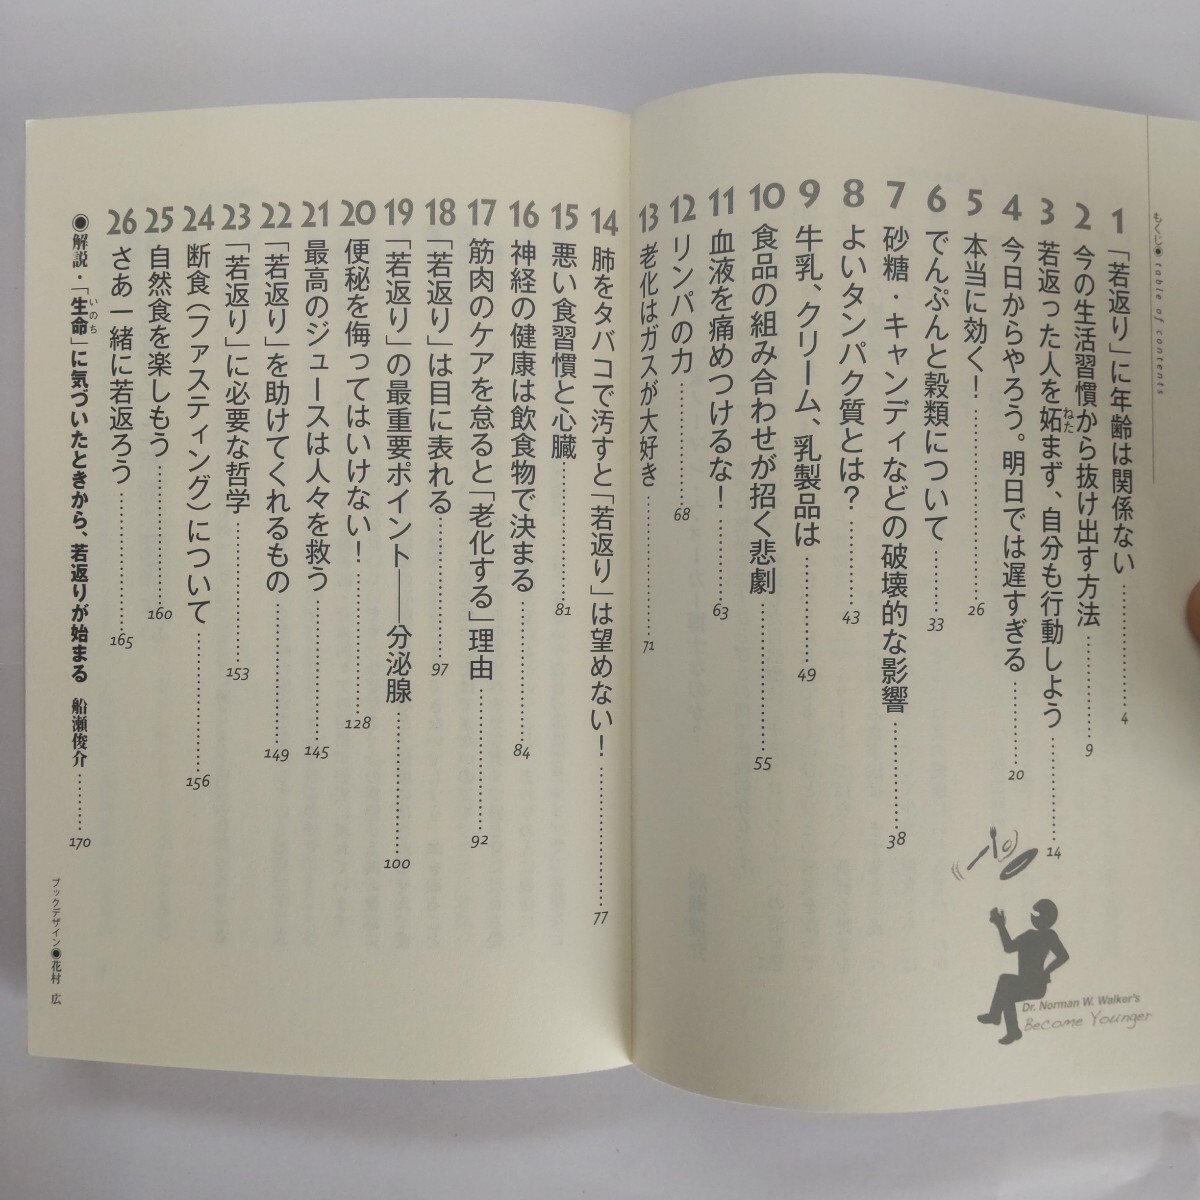 もくじ◉table of contents
1 「若返り」に年齢は関係ない………4
2 今の生活習慣から抜け出す方法………9
3 若返った人を妬まず、自分も行動しよう………14
ねた
4 今日からやろう。明日では遅すぎる………20
5 本当に効く!………26
6 でんぷんと穀類について………33
7 砂糖・キャンディなどの破壊的な影響………38
8 よいタンパク質とは?………43
9 牛乳、クリーム、乳製品は………49
10 食品の組み合わせが招く悲劇………55
11 血液を痛めつけるな!………63
12 リンパの力………68
13 老化はガスが大好き………71
Dr. Norman W. Walker's
Become Younger
14 肺をタバコで汚すと「若返り」は望めない!………77
15 悪い食習慣と心臓………81
16 神経の健康は飲食物で決まる………84
17 筋肉のケアを怠ると「老化する」理由………92
18 「若返り」は目に表れる………97
19 「若返り」の最重要ポイント——分泌腺………100
20 便秘を侮ってはいけない!………128
21 最高のジュースは人々を救う………145
22 「若返り」を助けてくれるもの………149
23 「若返り」に必要な哲学………153
24 断食(ファスティング)について………156
25 自然食を楽しもう………160
26 さあ一緒に若返ろう………165
◉解説・「生命」に気づいたときから、若返りが始まる 船瀬俊介………170
いのち
ブックデザイン◉花村 広